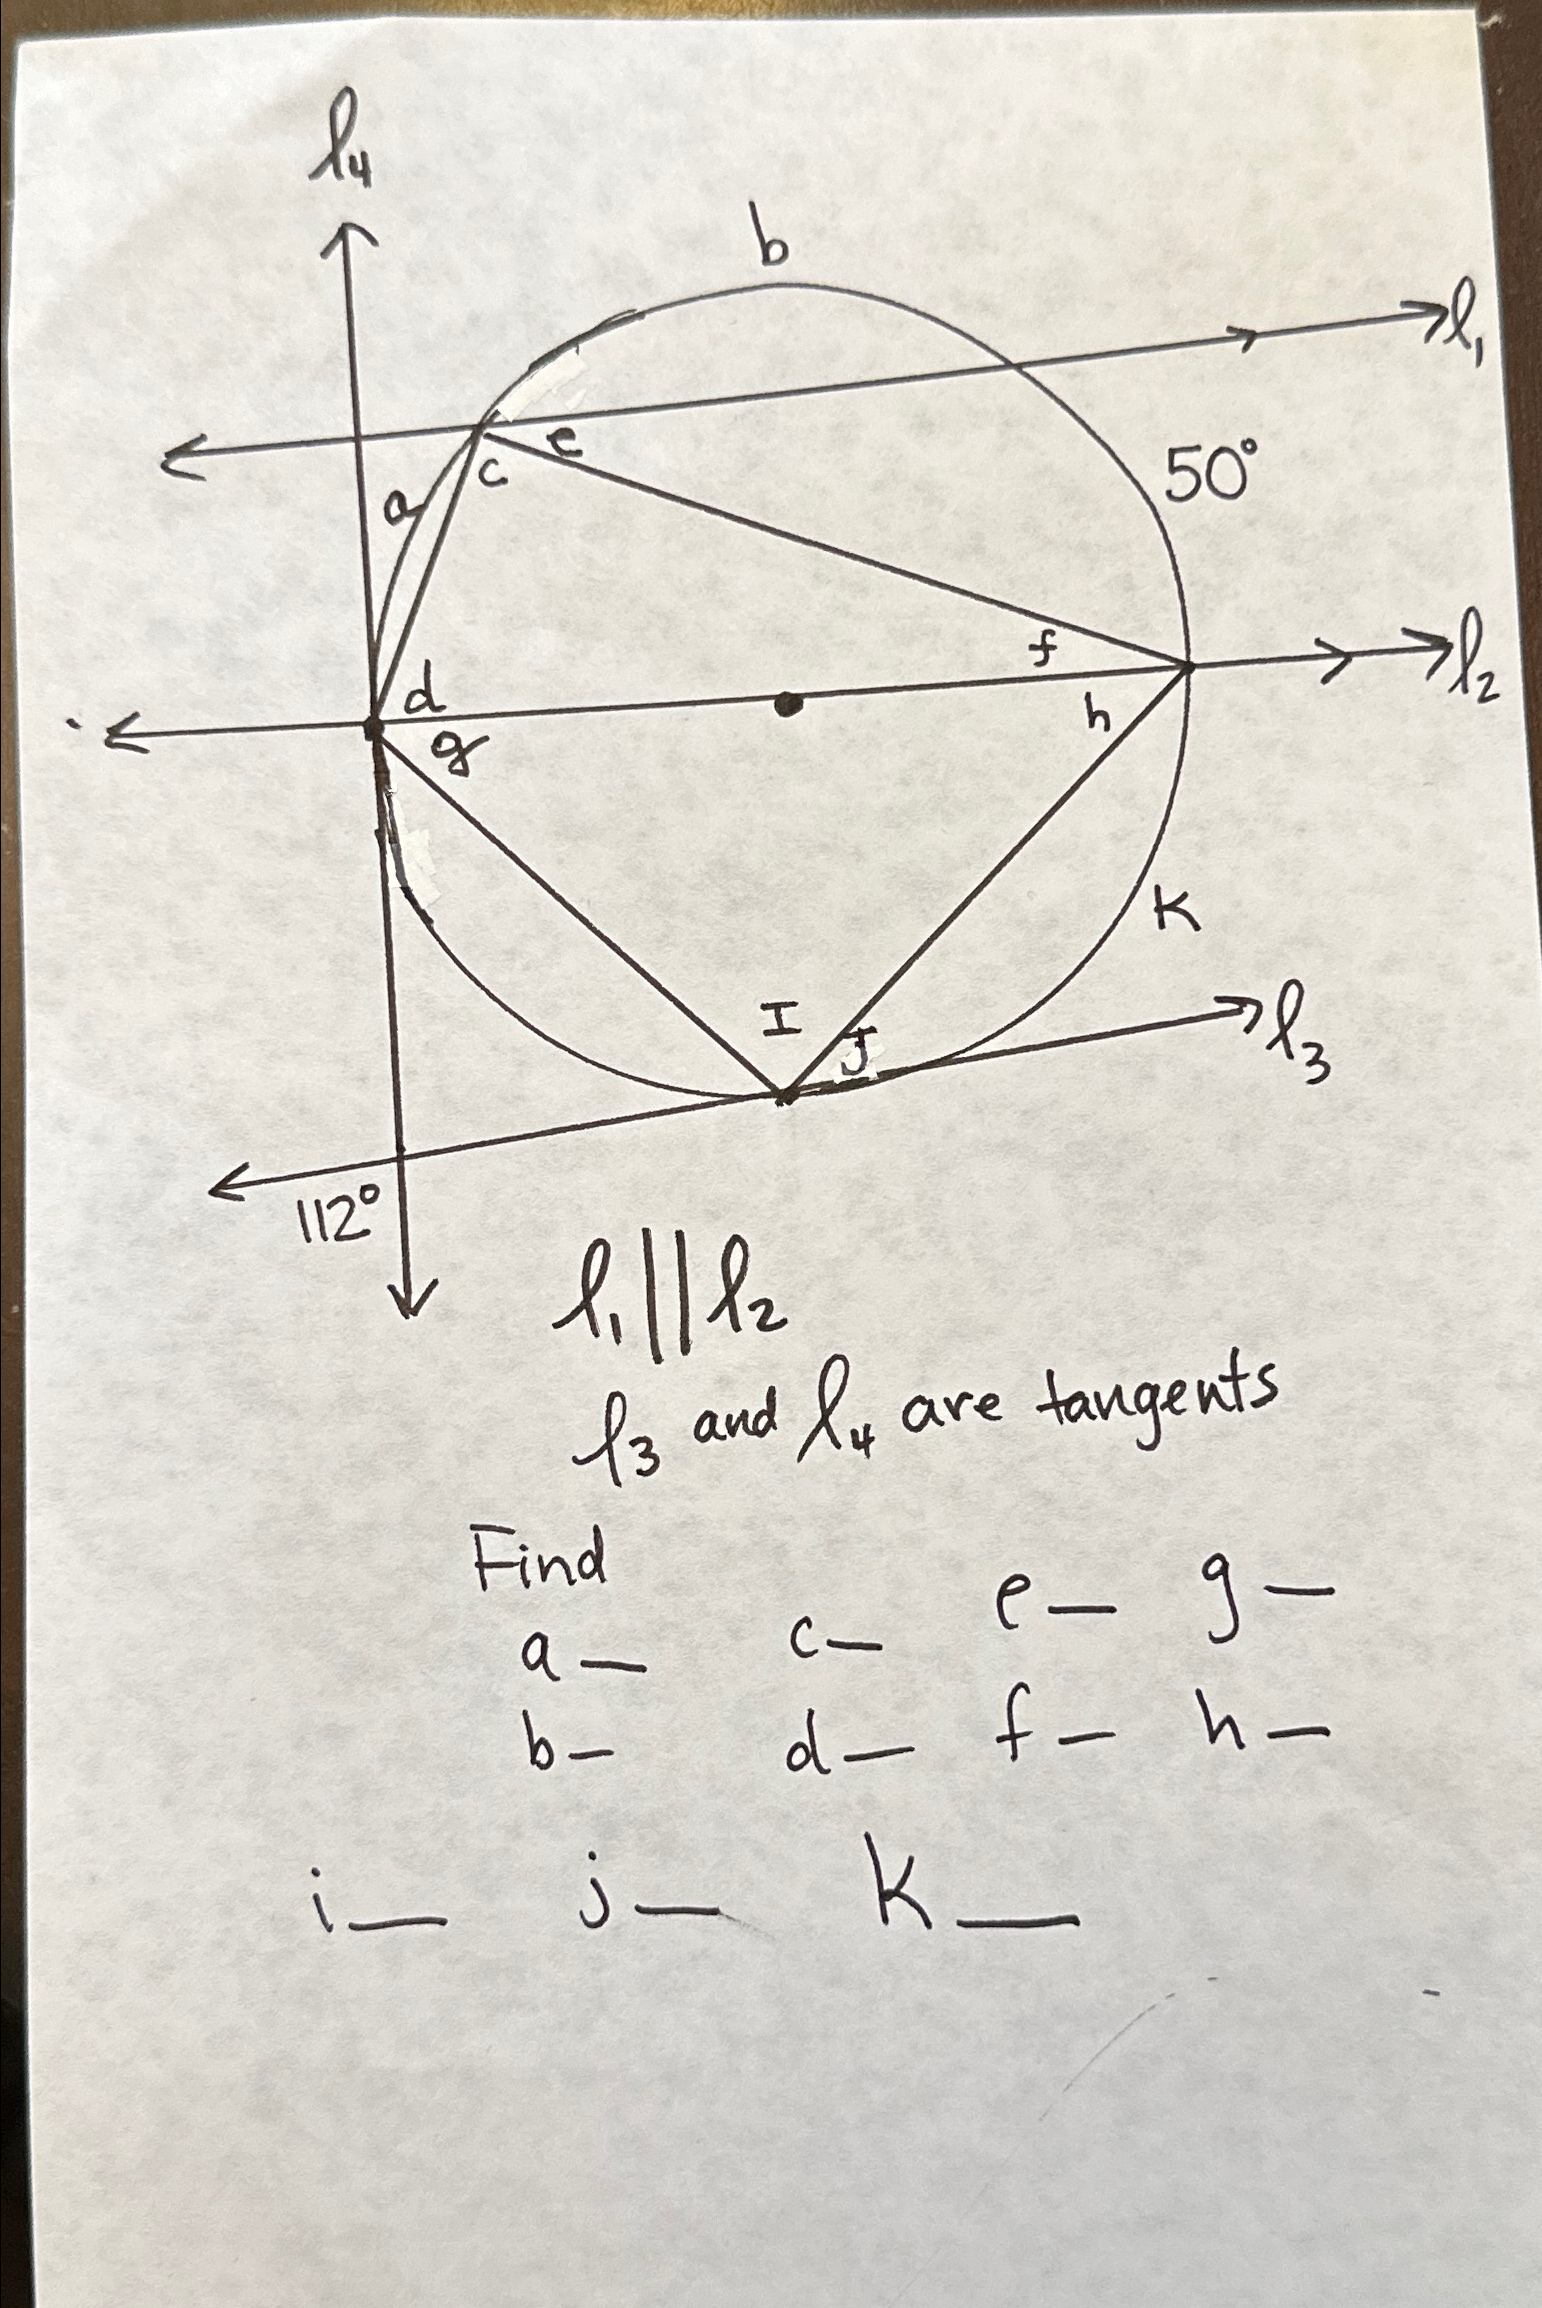 l₄
b
l₁
e
c
a
50°
f
l₂
d
h
g
K
I
J
l₃
112°
l₁ || l₂
l₃ and l₄ are tangents
Find
a — c — e — g —
b — d — f — h —
i — j — k —